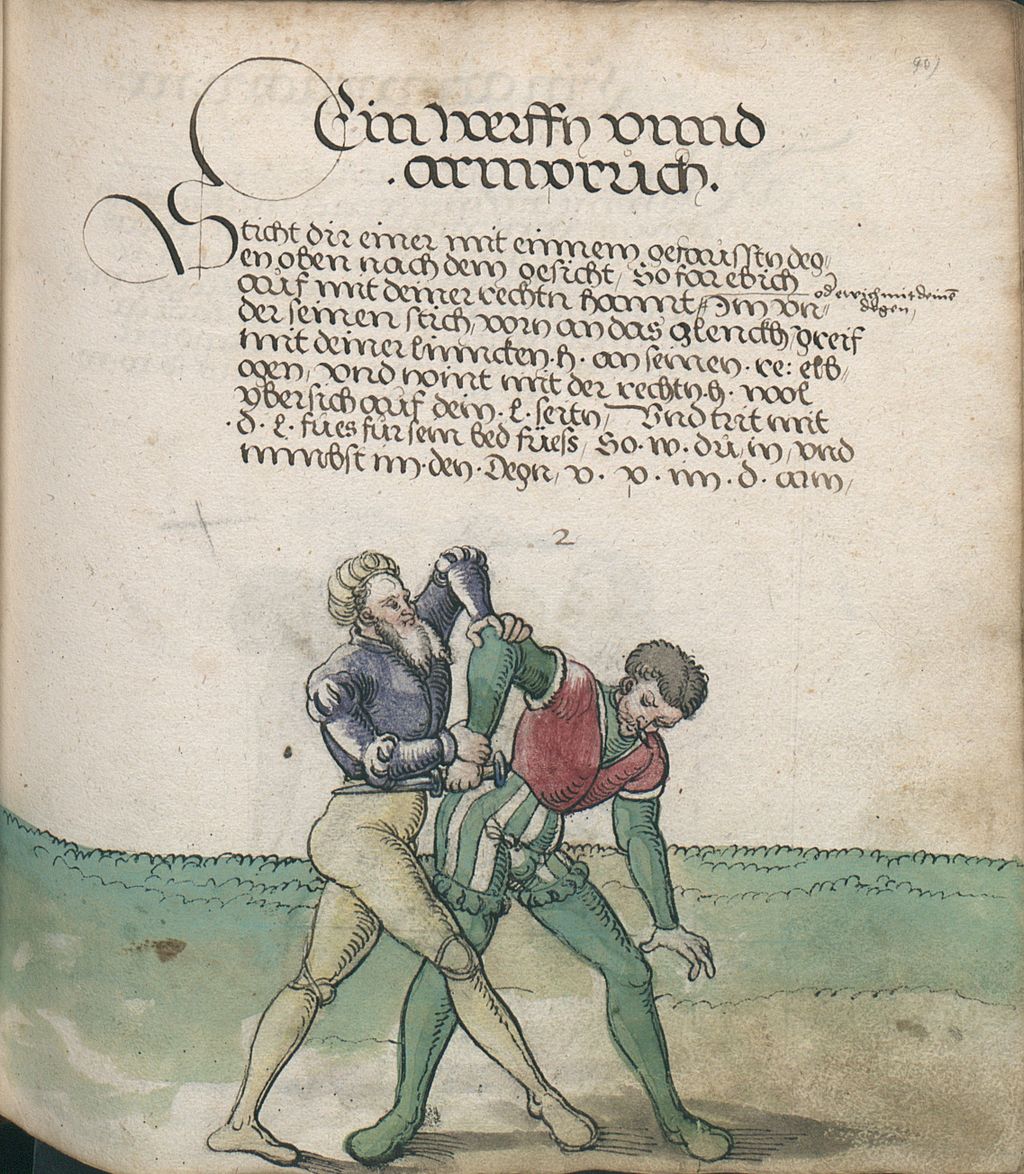 90)
Ein werffn vnnd
. armprüch .
Sticht dir einer mit einnem gefaussten deg,
en oben nach dem gesicht, So far ebich
auf mit deiner rechtn hannt, Im vn,
od ewich mit deinē
degen,
der seinen stich, vorn an das glenckh, greif
mit deiner linncken . h . an seinen . re: elb,
ogen, vnd wint mit der rechtn . h . wol
vbersich auf dein . l . seitn, Vnd trit mit
. d . l . fües für sein bed füess, So . w . dü, in, vnd
nimbst im . den . Degn, v . p . im . d . arm,
2